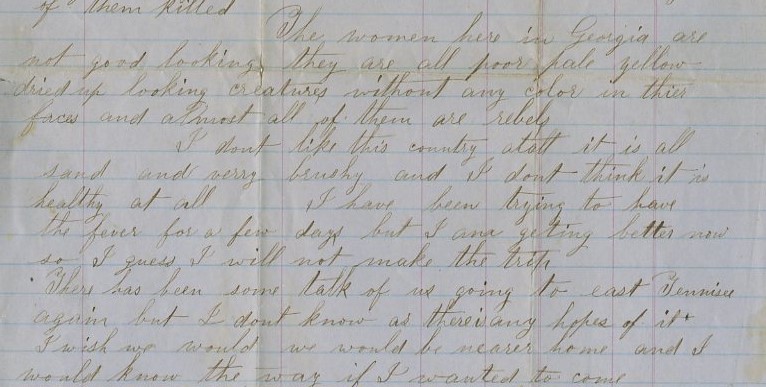 of them killed
The women here in Georgia are
not good looking they are all poor pale yellow
dried up looking creatures without any color in thier
faces and almost all of them are rebels
I dont like this country atall it is all
sand and verry brushy and I dont think it is
healthy at all I have been trying to have
the fever for a few days but I am geting better now
so I guess I will not make the trip
There has been some talk of us going to east Tennisee
again but I dont know as thereis any hopes of it
I wish we would we would be nearer home and I
would know the way if I wanted to come